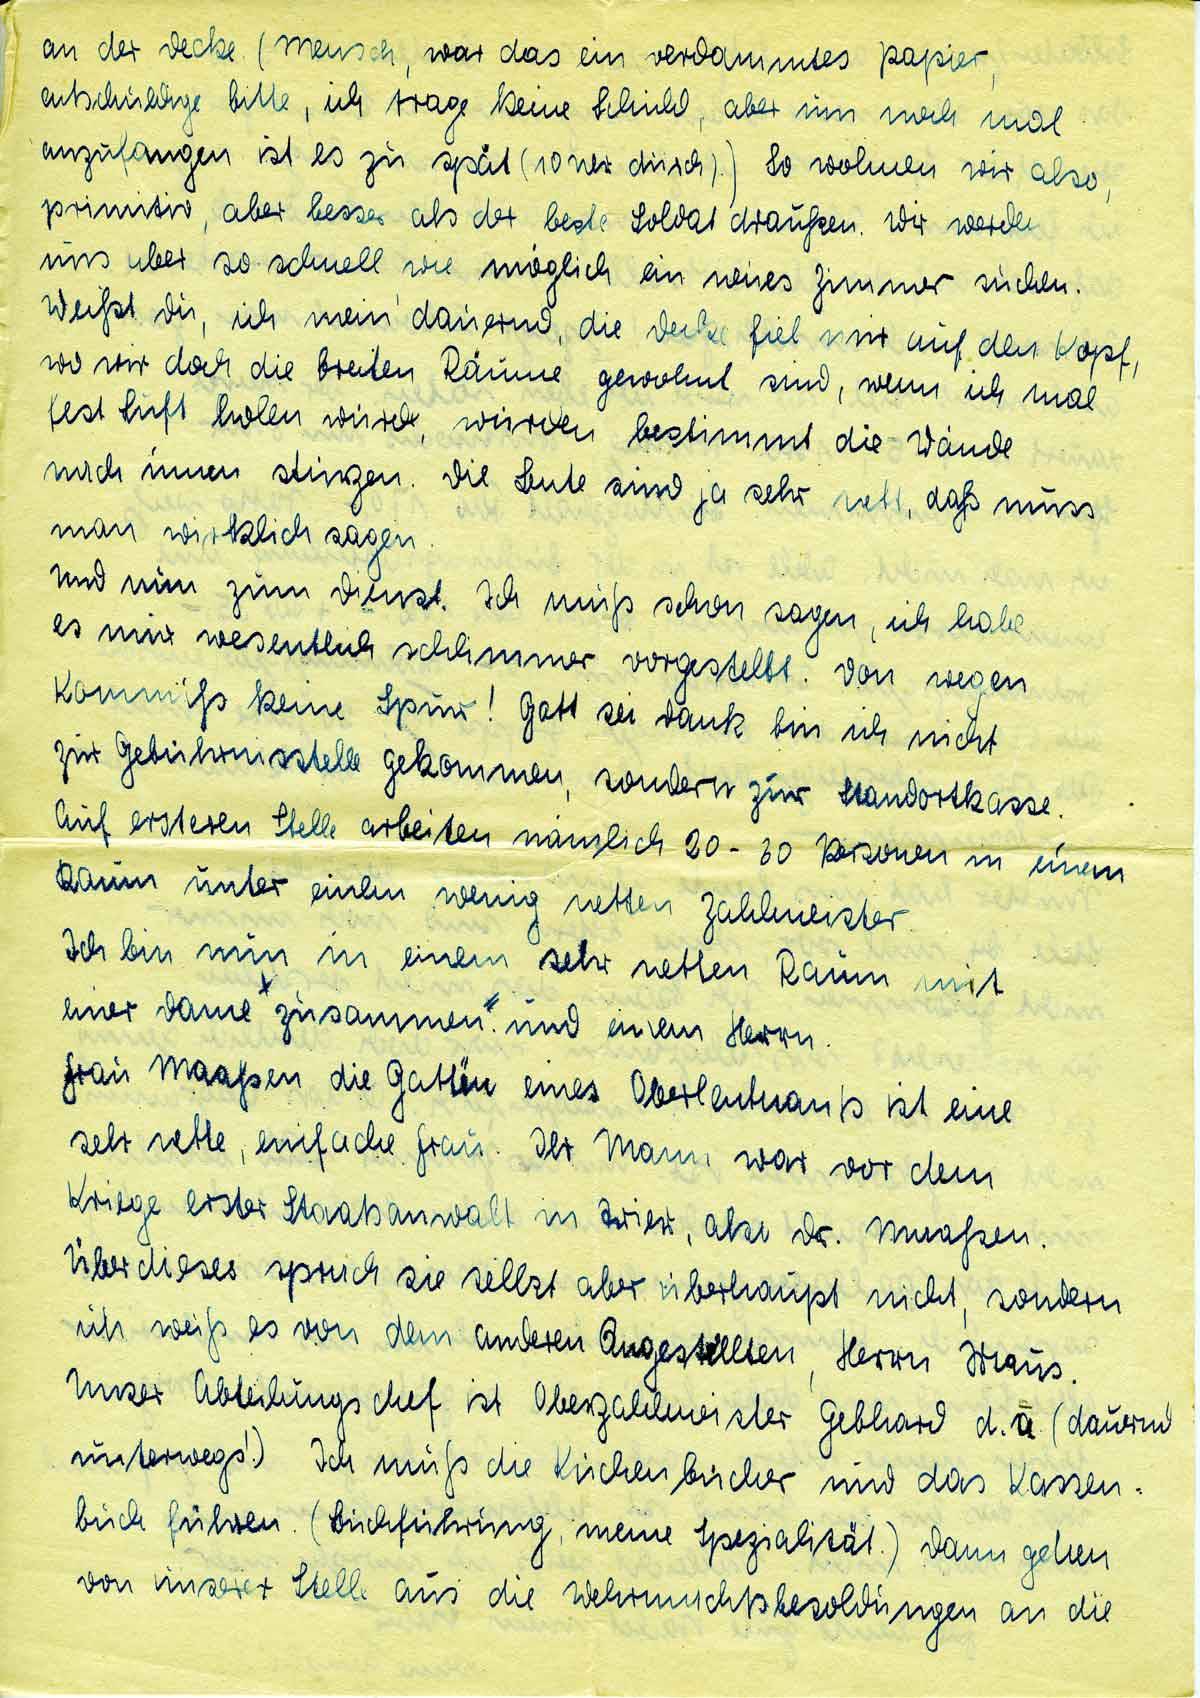 an der Decke. (Mensch, war das ein verdammtes Papier,
entschuldige bitte, ich trage keine Schuld, aber um noch mal
anzufangen ist es zu spät (10 Uhr durch).) So wohnen wir also,
primitiv, aber besser als der beste Soldat draußen. Wir werden
uns aber so schnell wie möglich ein neues Zimmer suchen.
Weißt Du, ich mein dauernd, die Decke fiel mir auf den Kopf,
wo wir doch die breiten Räume gewohnt sind, wenn ich mal
fest Luft holen würde, würden bestimmt die Wände
nach innen stürzen. Die Leute sind ja sehr nett, daß muss
man wirklich sagen.
Und nun zum Dienst. Ich muß schon sagen, ich habe
es mir wesentlich schlimmer vorgestellt. Von wegen
Kommiß keine Spur! Gott sei dank bin ich nicht
zur Gebührnisstelle gekommen, sondern zur Standortkasse.
Auf ersteren Stelle arbeiten nämlich 20-30 Personen in einem
Raum unter einem wenig netten Zahlmeister.
Ich bin nun in einem sehr netten Raum mit
einer Dame "zusammen". und einem Herrn.
Frau Maaßen die Gattin eines Oberleutnants ist eine
sehr nette, einfache Frau. Ihr Mann war vor dem
Kriege erster Staatsanwalt in Trier, also Dr. Maaßen.
Über dieses sprach sie selbst aber überhaupt nicht, sondern
ich weiß es von dem anderen Angestellten, Herrn
Unser Abteilungschef ist Oberzahlmeister Gebhard d.u. (dauernd
unterwegs!) Ich muß die Küchenbücher und das Kassen-
buch führen. (Buchführung, meine Spezialität.) Dann gehen
von unserer Stelle aus die Wehrmachtsbesoldungen an die